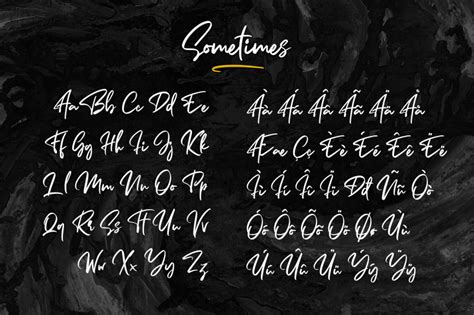 Sometimes
Aa Bb Cc Dd Ee
Ff Gg Hh Ii Jj Kk
Ll Mm Nn Oo Pp
Qq Rr Ss Tt Uu Vv
Ww Xx Yy Zz
Àà Áá Ââ Ãã Ää Åå
Ææ Çç Èè Éé Êê Ëë
Ìì Íí Îî Ïï Đđ Ññ Òò
Óó Ôô Õõ Öö Øø Ùù
Úú Ûû Üü Ýý Ÿÿ